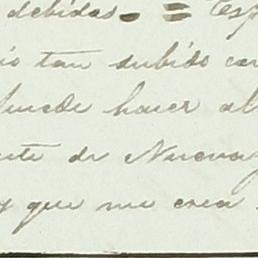 debidas = Esp
io tan subido ca
puede hacer al
ente de Nueva
y que me crea